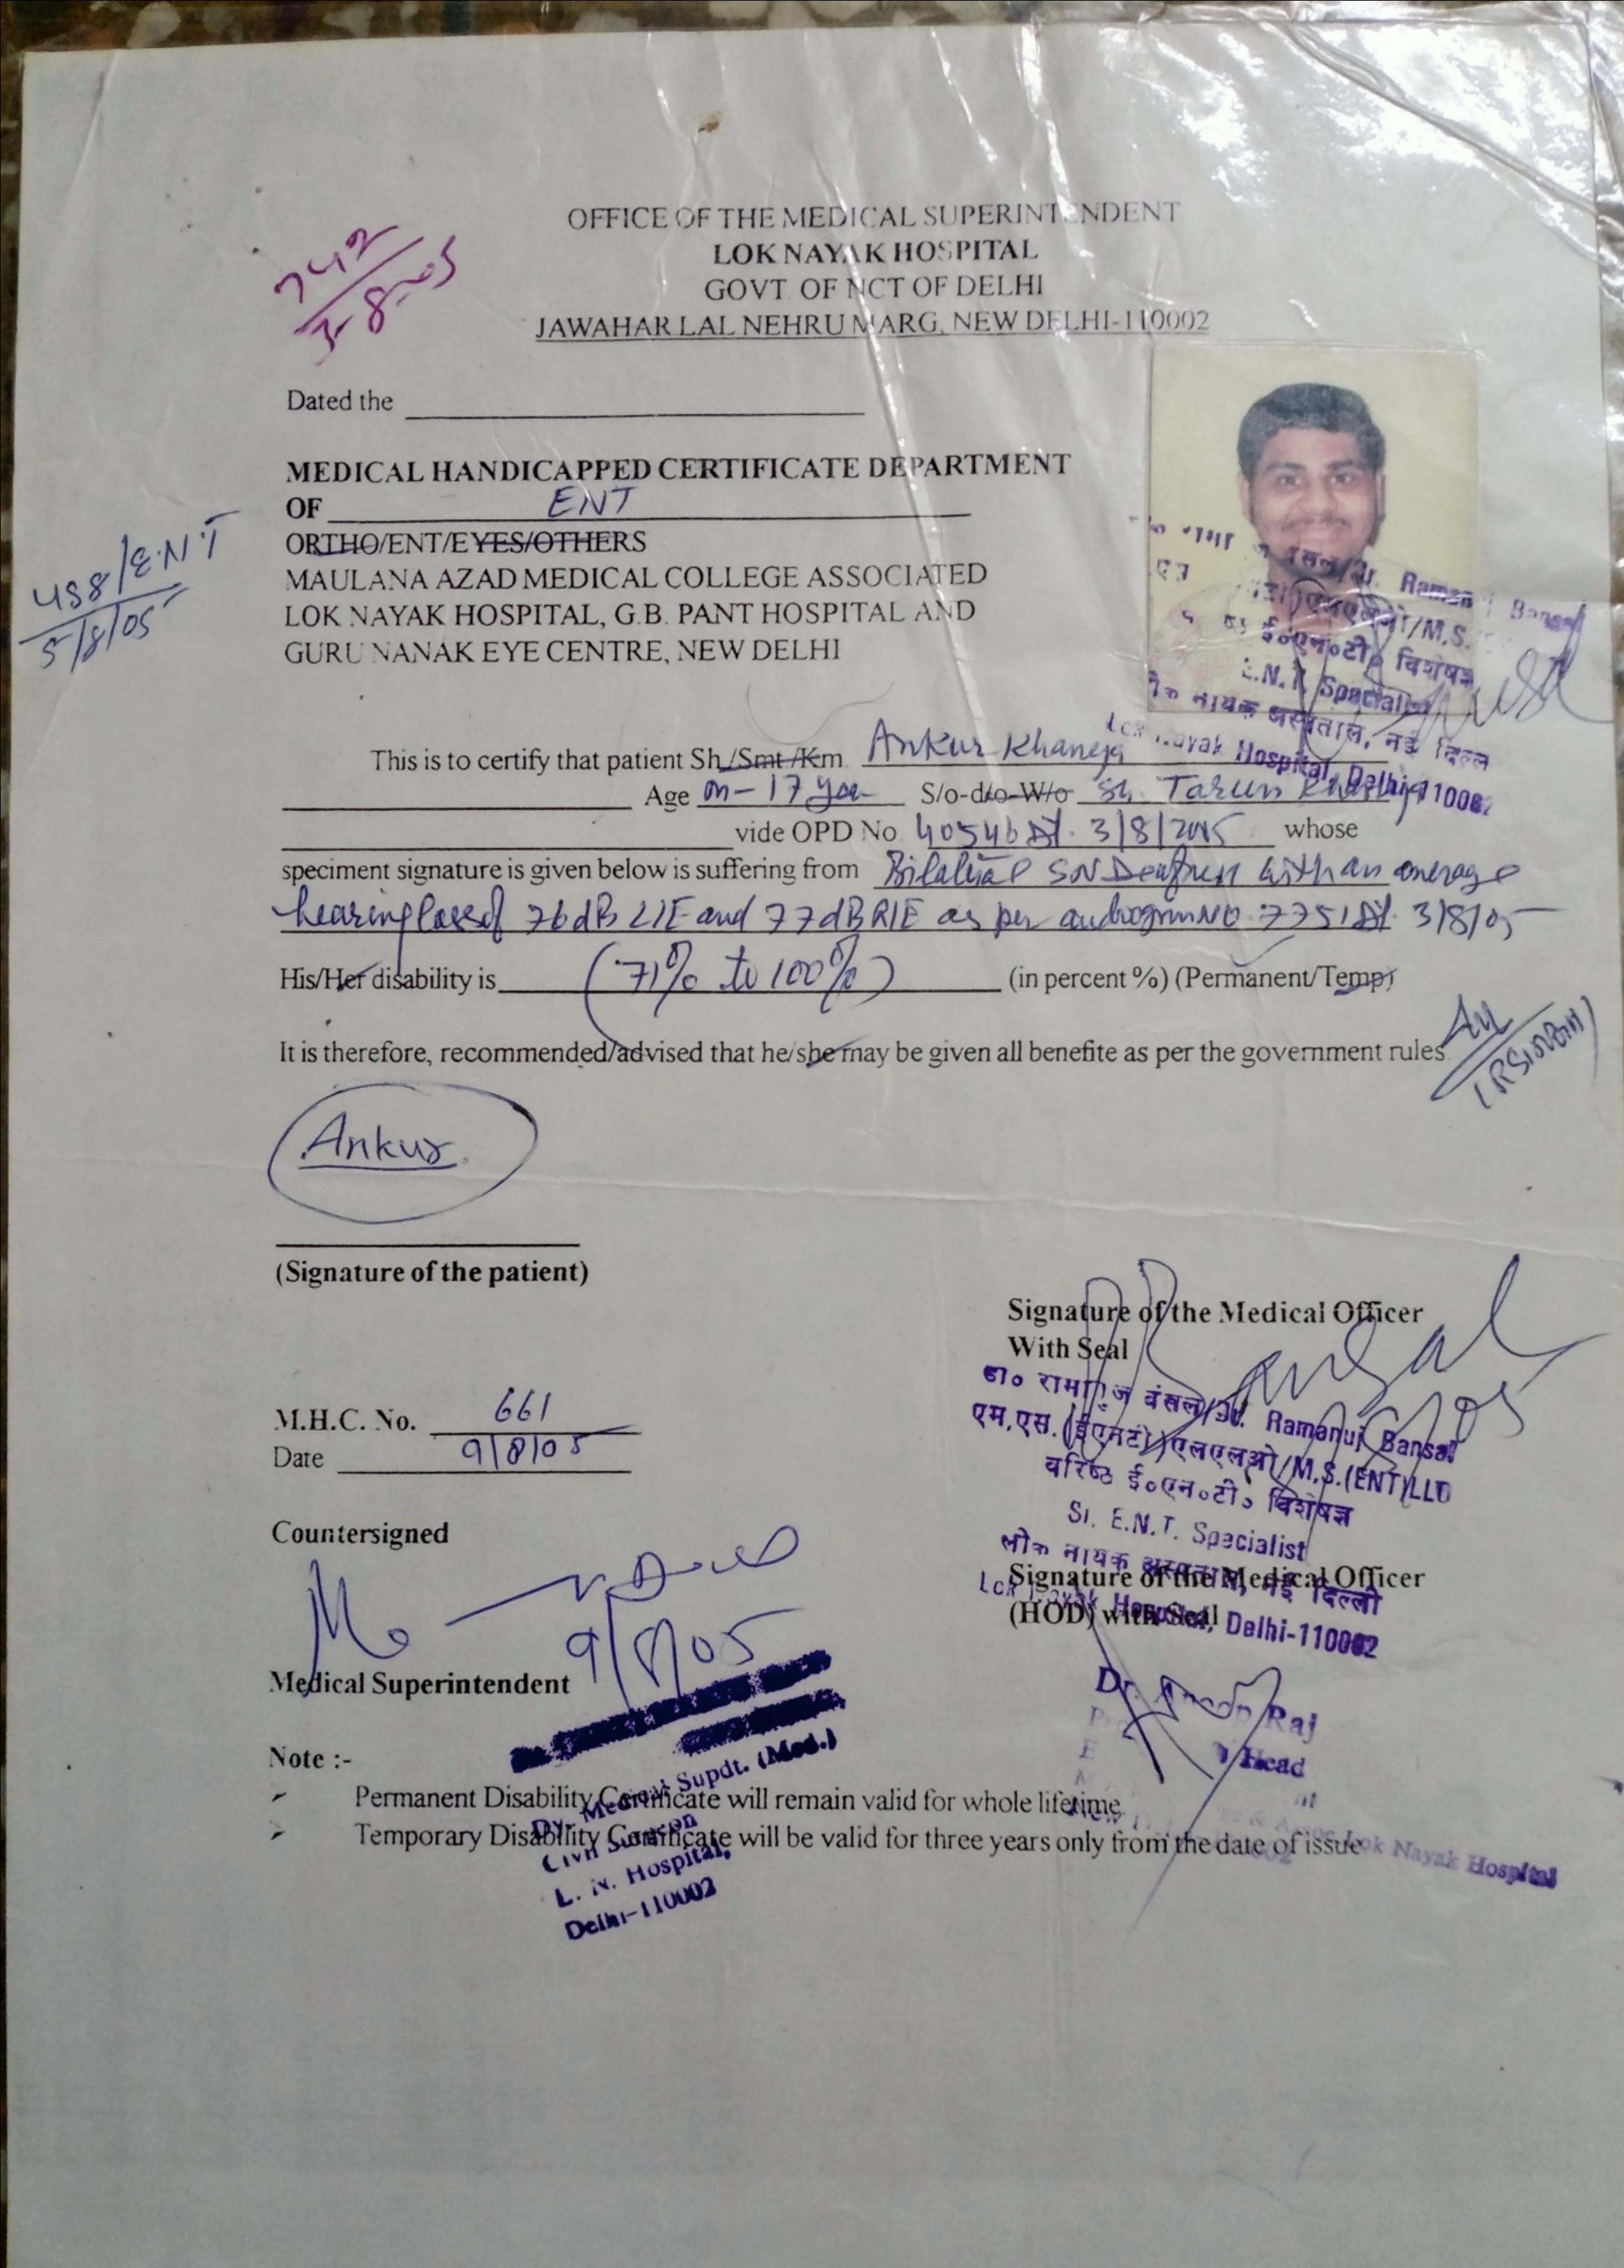 OFFICE OF THE MEDICAL SUPERINTENDENT
LOK NAYAK HOSPITAL
GOVT. OF NCT OF DELHI
JAWAHAR LAL NEHRU MARG, NEW DELHI-110002
742
8-05
Dated the
MEDICAL HANDICAPPED CERTIFICATE DEPARTMENT
OF ENT
ORTHO/ENT/EYES/OTHERS
MAULANA AZAD MEDICAL COLLEGE ASSOCIATED
LOK NAYAK HOSPITAL, G.B. PANT HOSPITAL AND
GURU NANAK EYE CENTRE, NEW DELHI
458/E.N.T
5/8/05
Bansal
/M.S.
ई०एन०टी० विशेषज्ञ
E.N.T. Specialist
नायक अस्पताल, नई दिल्ली
Lok Nayak Hospital, Delhi-110002
This is to certify that patient Sh./Smt./Km. Ankur Khaneja
Age m- 17 S/o-d/o-W/o Sh. Tarun Khaneja
vide OPD No. 40546 Dt. 3/8/2005 whose
speciment signature is given below is suffering from Bilateral SN Deafness with an average
hearing loss of 76dB L/E and 77dB R/E as per audiogram No. 7751 Dt. 3/8/05
His/Her disability is (71% to 100%) (in percent %) (Permanent/Temp)
It is therefore, recommended/advised that he/she may be given all benefite as per the government rules
Ankur
(Signature of the patient)
Signature of the Medical Officer
With Seal
डा० रामानुज बंसल/Dr. Ramanuj Bansal
एम.एस.(ईएनटी)एलएलओ/M.S.(ENT)LLD
वरिष्ठ ई०एन०टी० विशेषज्ञ
Sr. E.N.T. Specialist
लोक नायक अस्पताल, नई दिल्ली
Lok Nayak Hospital, Delhi-110002
M.H.C. No. 661
Date 9/8/05
Countersigned
9/8/05
Medical Superintendent
Signature of the Medical Officer
(HOD) with Seal
Dr. Raj
Head
Lok Nayak Hospital
Dy. Medical Supdt. (Med.)
Civil Surgeon
L. N. Hospital,
Delhi-110002
Note :-
Permanent Disability Certificate will remain valid for whole lifetime
Temporary Disability Certificate will be valid for three years only from the date of issue